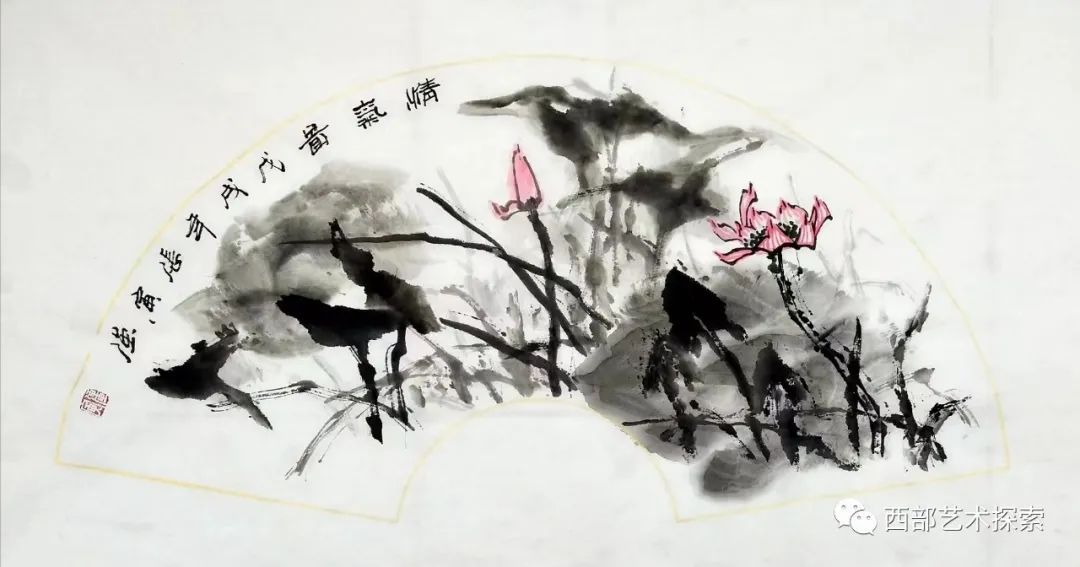 清氣啚戊戌年張
西部艺术探索